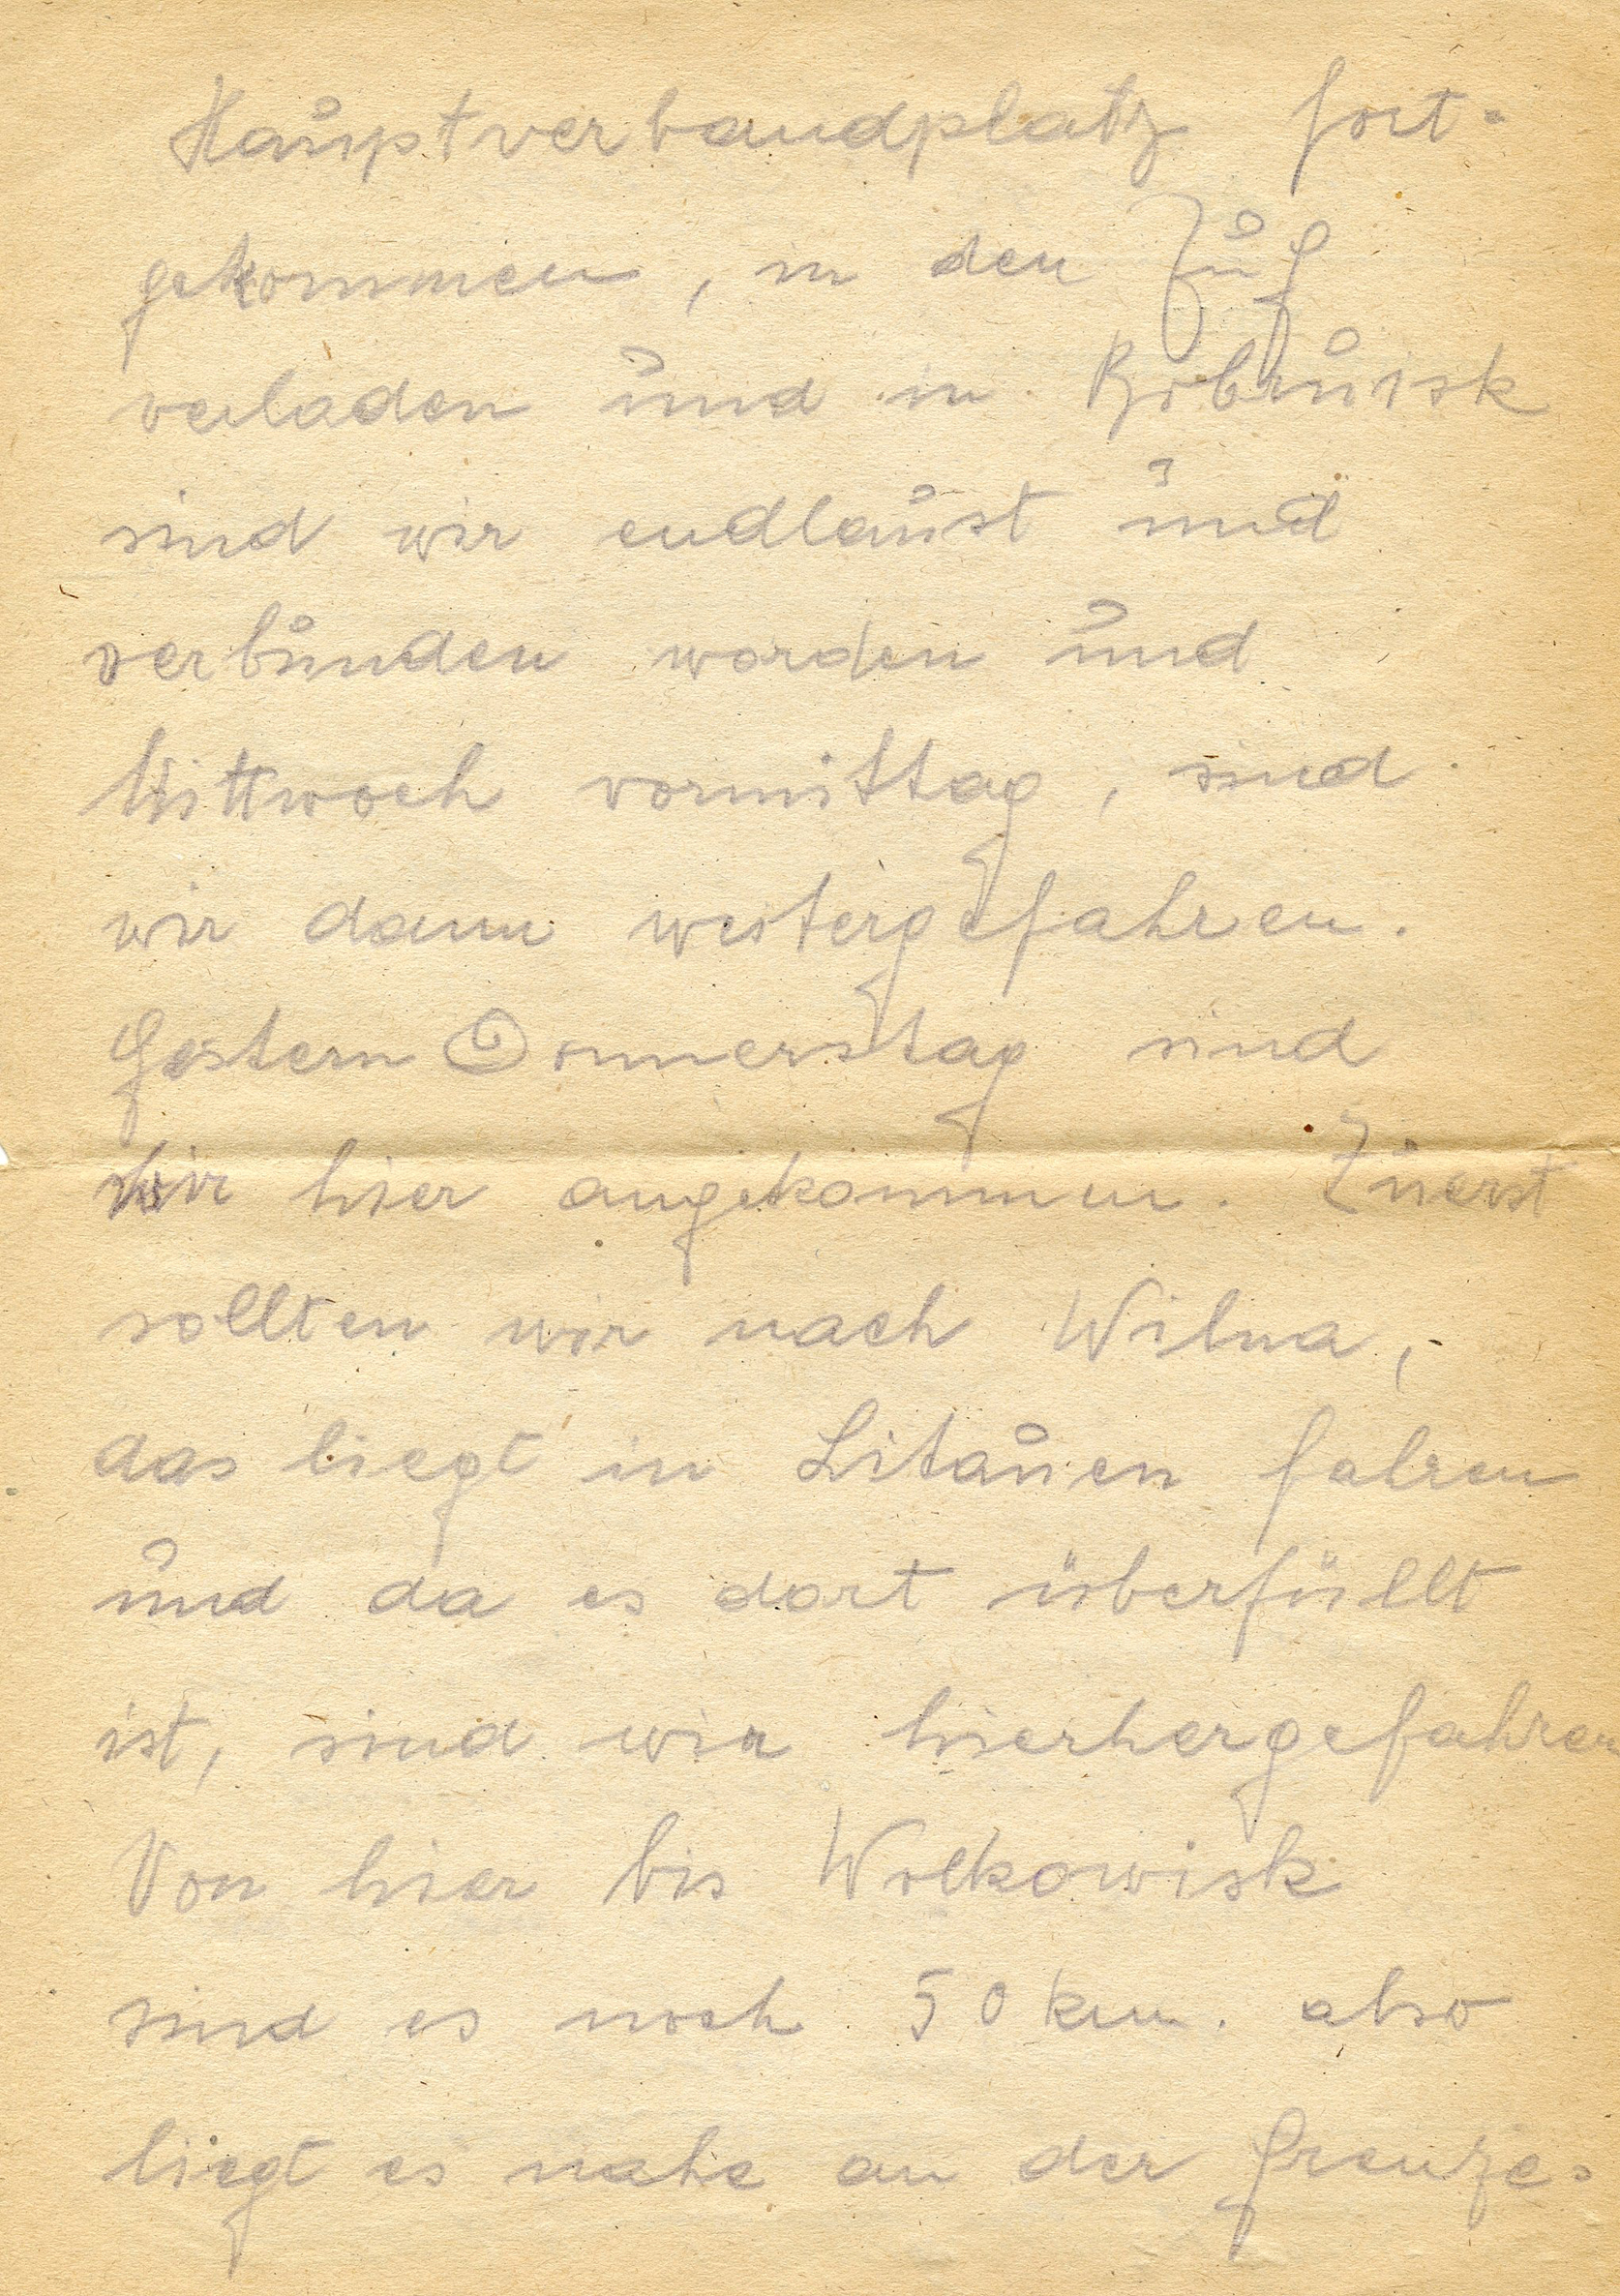 Hauptverbandplatz fort-
gekommen, in den Zug
verladen und in Bobruisk
sind wir endlaust und
verbunden worden und
Mittwoch vormittag, sind
wir dann weitergefahren.
Gestern Donnerstag sind
wir hier angekommen. Zuerst
sollten wir nach Wilna,
das liegt in Litauen fahren
und da es dort überfüllt
ist, sind wir hierhergefahren
Von hier bis Wolkowisk
sind es noch 50 km. also
liegt es nahe an der Grenze.